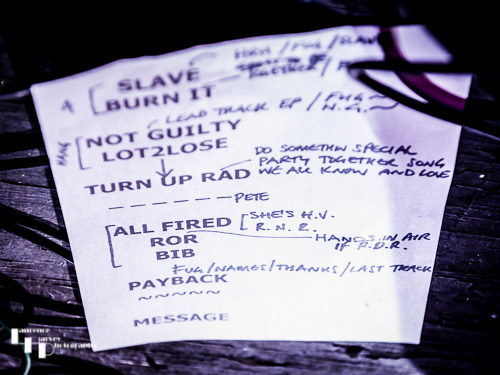 SLAVE
BURN IT
LEAD TRACK EP / FUG
NOT GUILTY
LOT2LOSE
DO SOMETHIN SPECIAL
PARTY TOGETHER SONG
WE ALL KNOW AND LOVE
TURN UP RAD
PETE
ALL FIRED
SHE'S H.V.
R.N.R.
HANDS IN AIR
IF R.D.R.
ROR
BIB
FUG/NAMES/THANKS/LAST TRACK
PAYBACK
MESSAGE
Laurence
Harvey
Photography